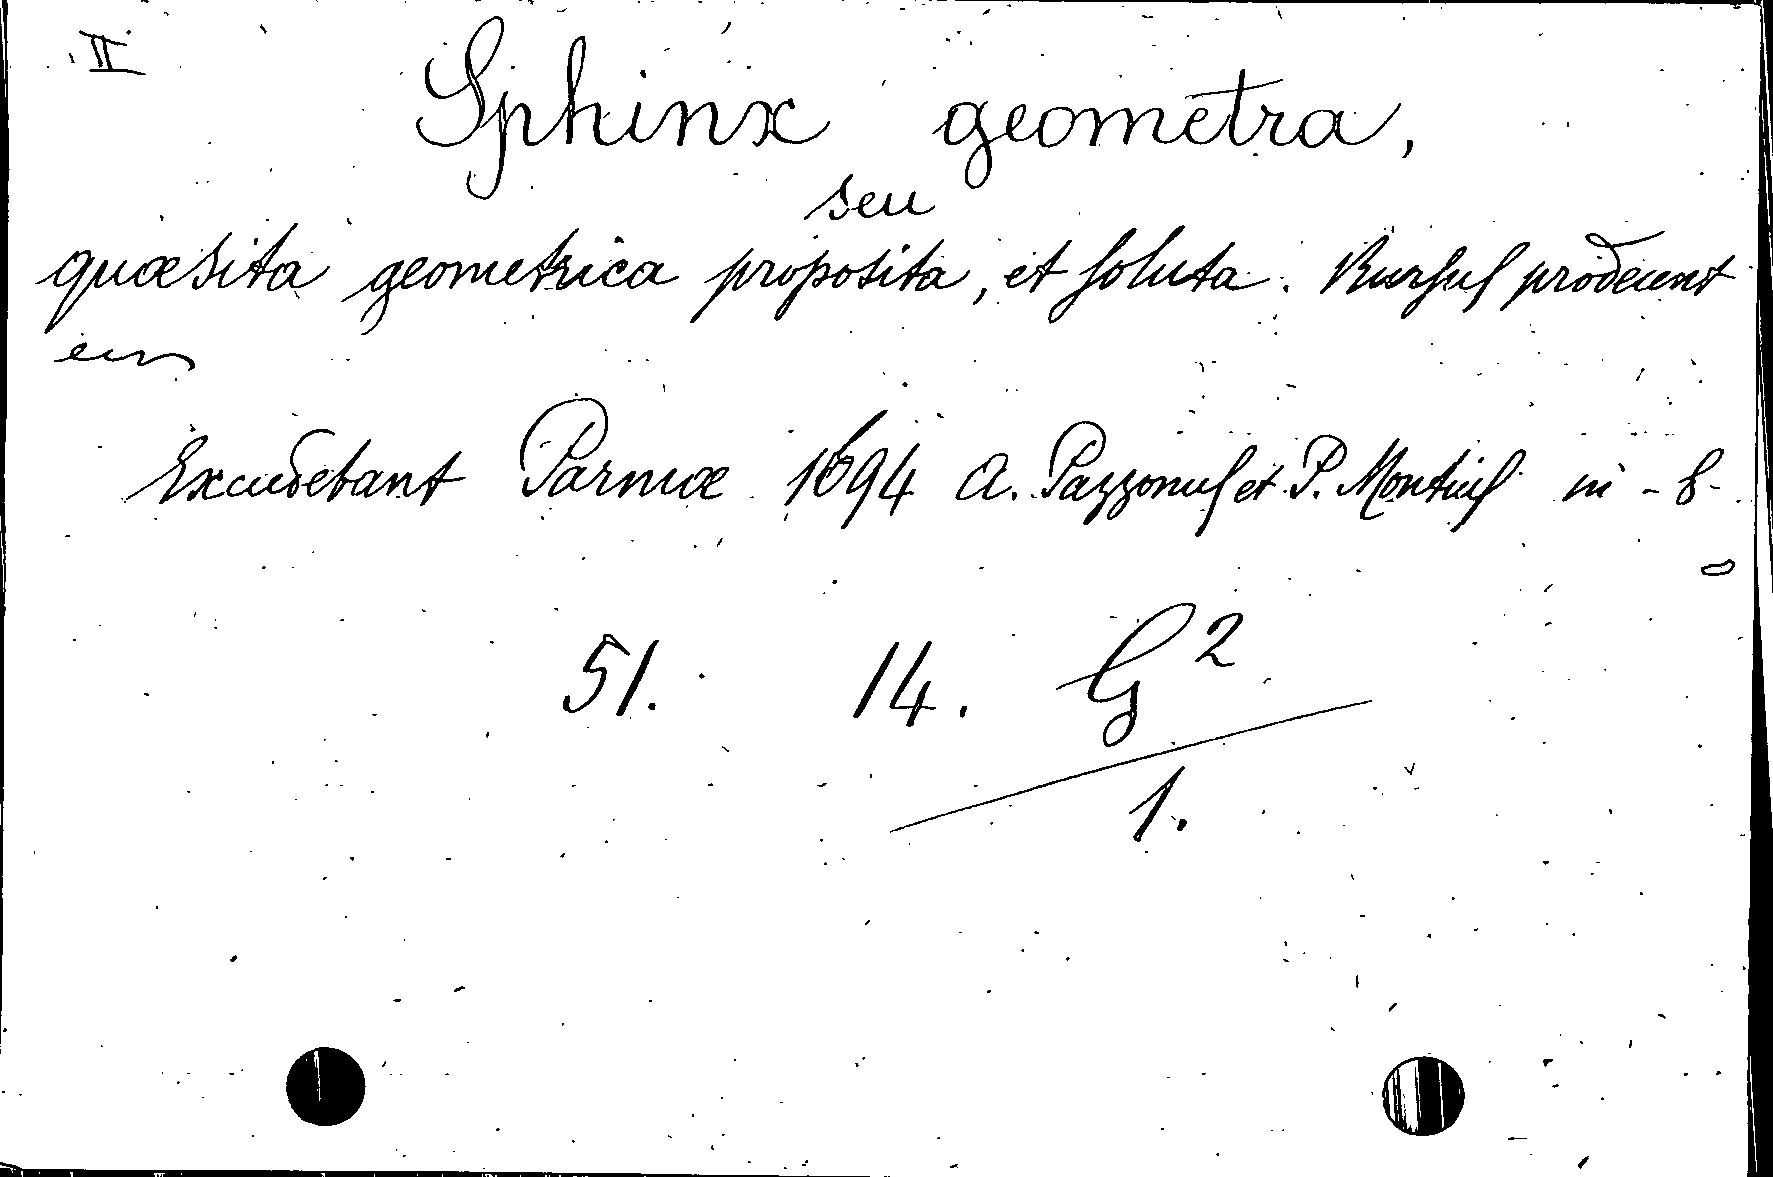 II
Sphinx geometra,
seu
quæsita geometrica proposita, et soluta. Rursus prodeunt
Excudebant Parmæ 1694 A. Pazzonus et P. Montius in-8-
51. 14. G²
1.